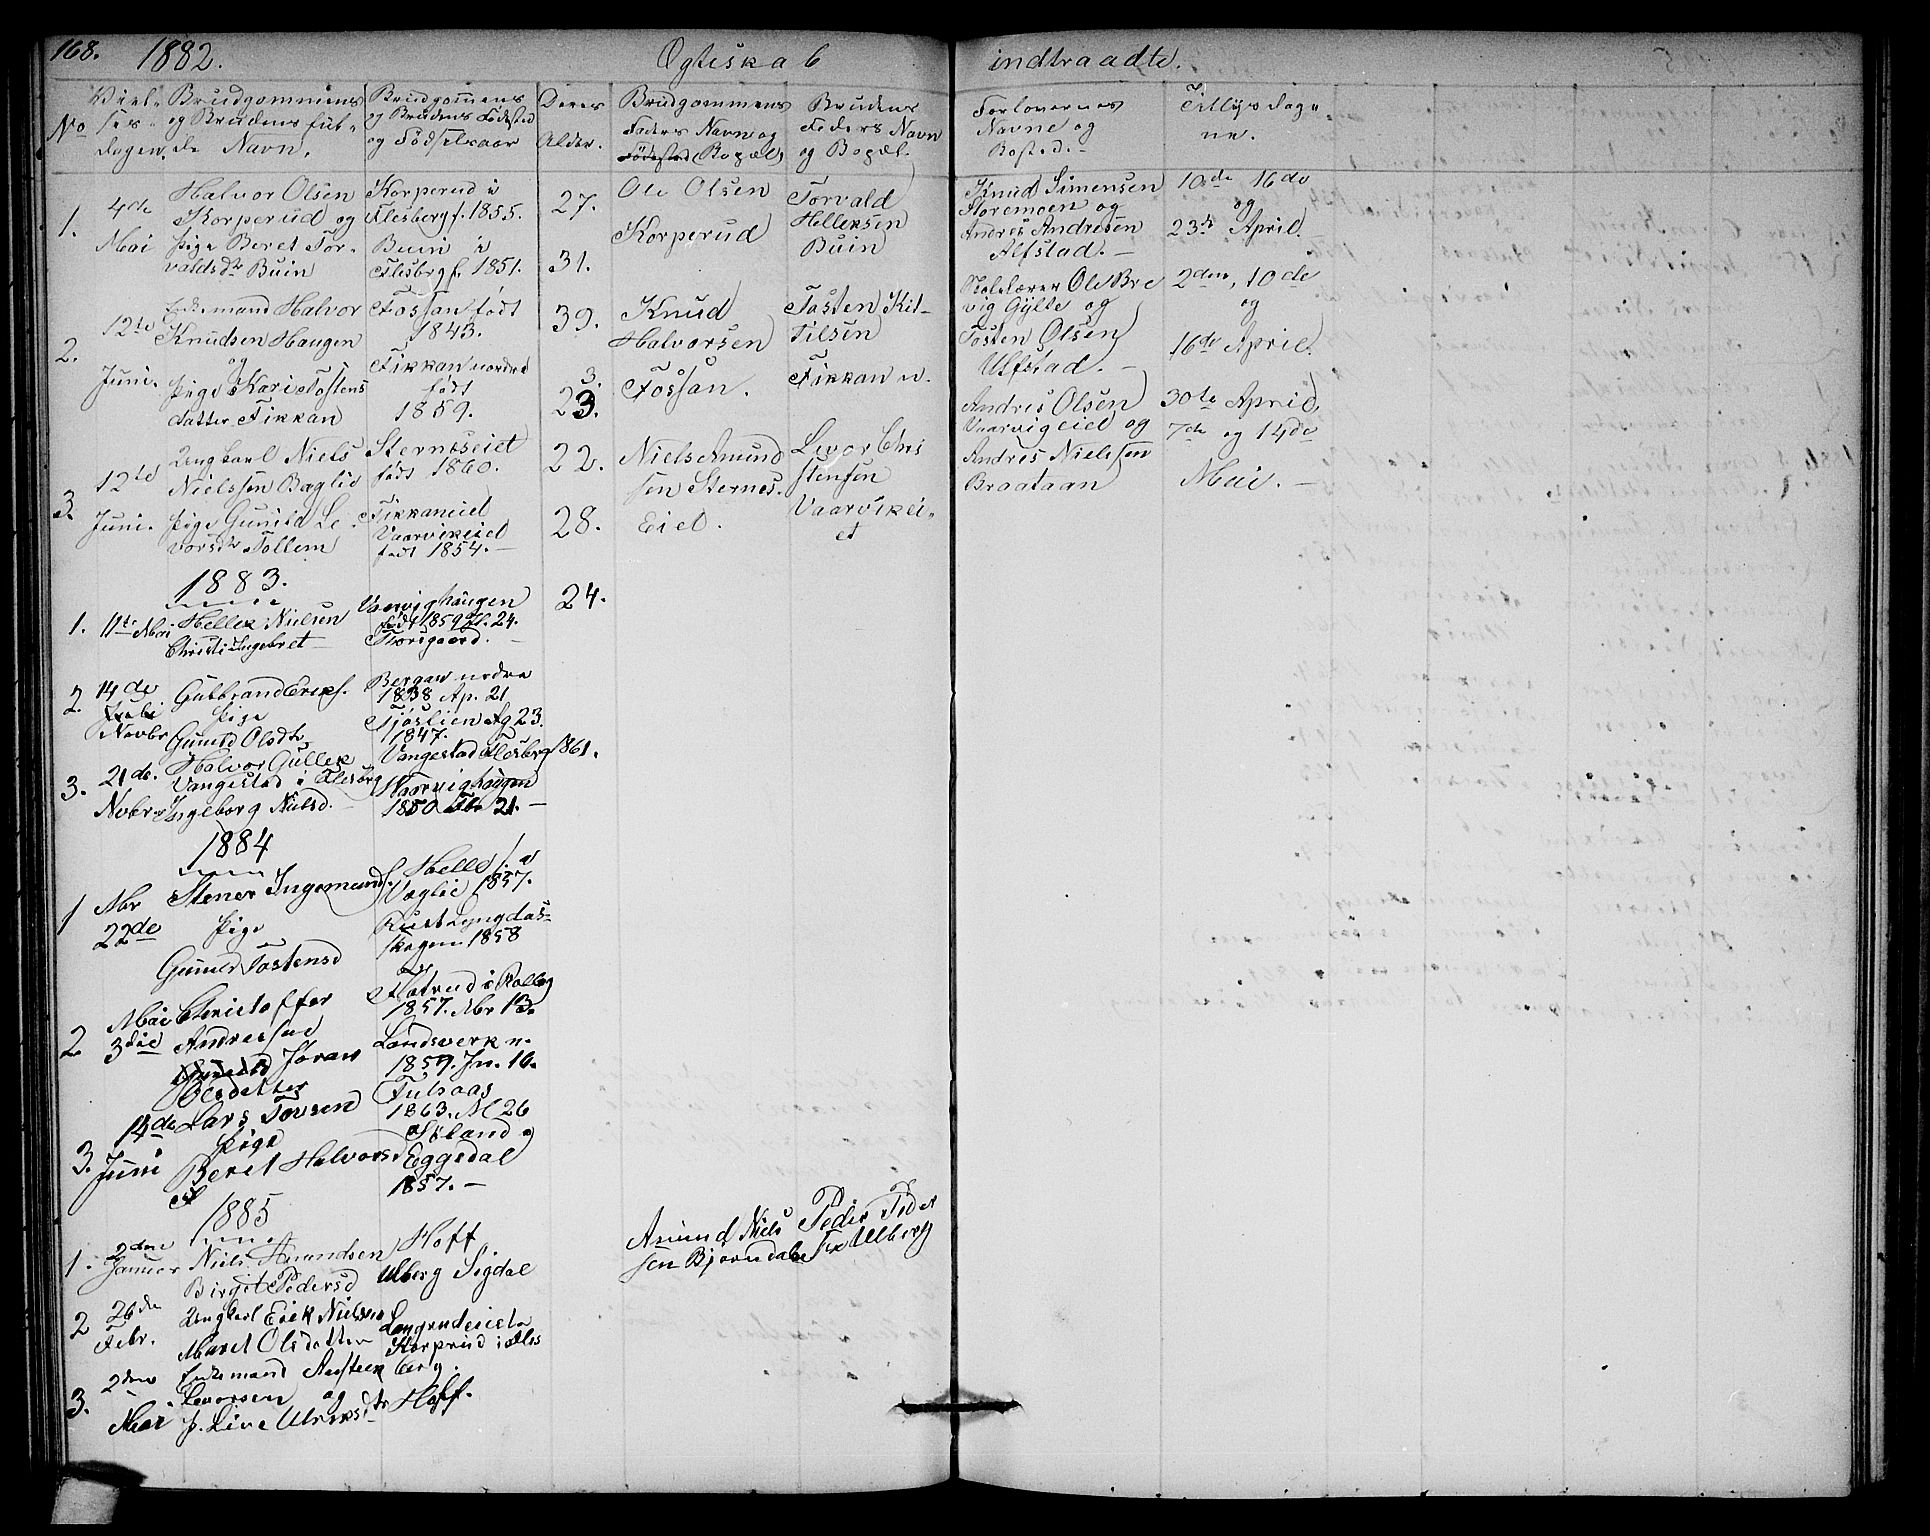 168. 1882. Ogteskab indtraadte.
No
Viel-
ses
dagen.
Brudgommens
og Brudens ful-
de Navn.
Brudgommens
og Brudens Födested
og Födselsaar
Deres
Alder.
Brudgommens
Faders Navn og
Födested Bopæl,
Brudens
Faders Navn
og Bopæl.
Forlovernes
Navne og
Bosted.
Tillysdage
ne.
1.
4de
Mai
Halvor Olsen
Korperud og
Pige Beret Tor-
valdsdr Buin
Korperud i
Flesberg f. 1855.
Buin i
Flesberg f. 1851.
27.
31.
Ole Olsen
Korperud
Torvald
Helleksen
Buin
Knud Simensen
Storemoen og
Andres Andresen
Alfstad.
10de 16de
og
23de April.
2.
12te
Juni.
Enkemand Halvor
Knudsen Haugen
og
Pige Kari Tostens
datter Fikkan
Fossan födt
1843.
Fikkan nordre
födt
1859.
39.
3.
23.
Knud
Halvorsen
Fossan.
Tosten Kit-
tilsen
Fikkan n.
Skolelærer Ole Bre
vig Gylte og
Tosten Olsen
Ulfstad.
2den, 10de
og
16de April.
3.
12te
Juni.
Ungkarl Niels
Nielssen Baglie
Pige Gunild Le-
vorsdr Tollem
Sterneseiet
födt 1860.
Fikkaneiel
Vaarvikeiel
födt 1854.
22.
28.
Niels Amund
sen Sternes.
Eiel.
Levor Chri
stensen
Vaarvikei-
et
Andres Olsen
Vaarvigeiel og
Andres Nielssen
Braataan
30te April,
7de og 14de
Mai.
1883.
1.
11te Mai
Hellek Nielsen
Christi Ingebret
Vaarvighaugen
födt 1859 Jl. 24.
Thorsgaard.
24.
2.
14de
Juli
Novbr
Gulbrand Eriks.
Pige
Gunild Olsdtr
Bergan nedre
1838 Ap. 21
Tjöslien Ag 23.
1847.
3.
21de.
Nobr.
Halvor Gullek
Vangestad i Flesberg
Ingeborg Nielsd.
Vangestad Flesberg 1861.
Vaarvighaugen
1850 Fbr 21.
1884
1
Mbr
22de
Stener Ingemunds.
Pige
Gunild Tostensd
Helle
Vaglie 1857.
Rust Lyngdas-
skogen 1858
2
Mai
3die
Christoffer
Andreasen
Gunild Joran
Olsdatter
Flotrud i Rolleg
1857. Mbr 13.
Landsverk n.
1859. Jn. 10.
3.
14de
Juni
Lars Torsen
Pige
Beret Halvors
d
Tulsaas
1863. Al 26
Söland
Eggedal
1857.
1885
1.
2den
Januar
Niels Amundsen
Birgit Pedersd
Hoff
Ulberg Sigdal
Amund Niels
sen Bjorndalen
Peder Peder
sen Ulberg
2
26de
Febr.
Ungkarl Erik Nielsen
Maret Olsdatter
Langerudeiet
Korprud i Fles
berg.
3.
2den
Mai
Enkemand Austeen
Levorsen og
p. Live Ulriksdtr
Hoff.